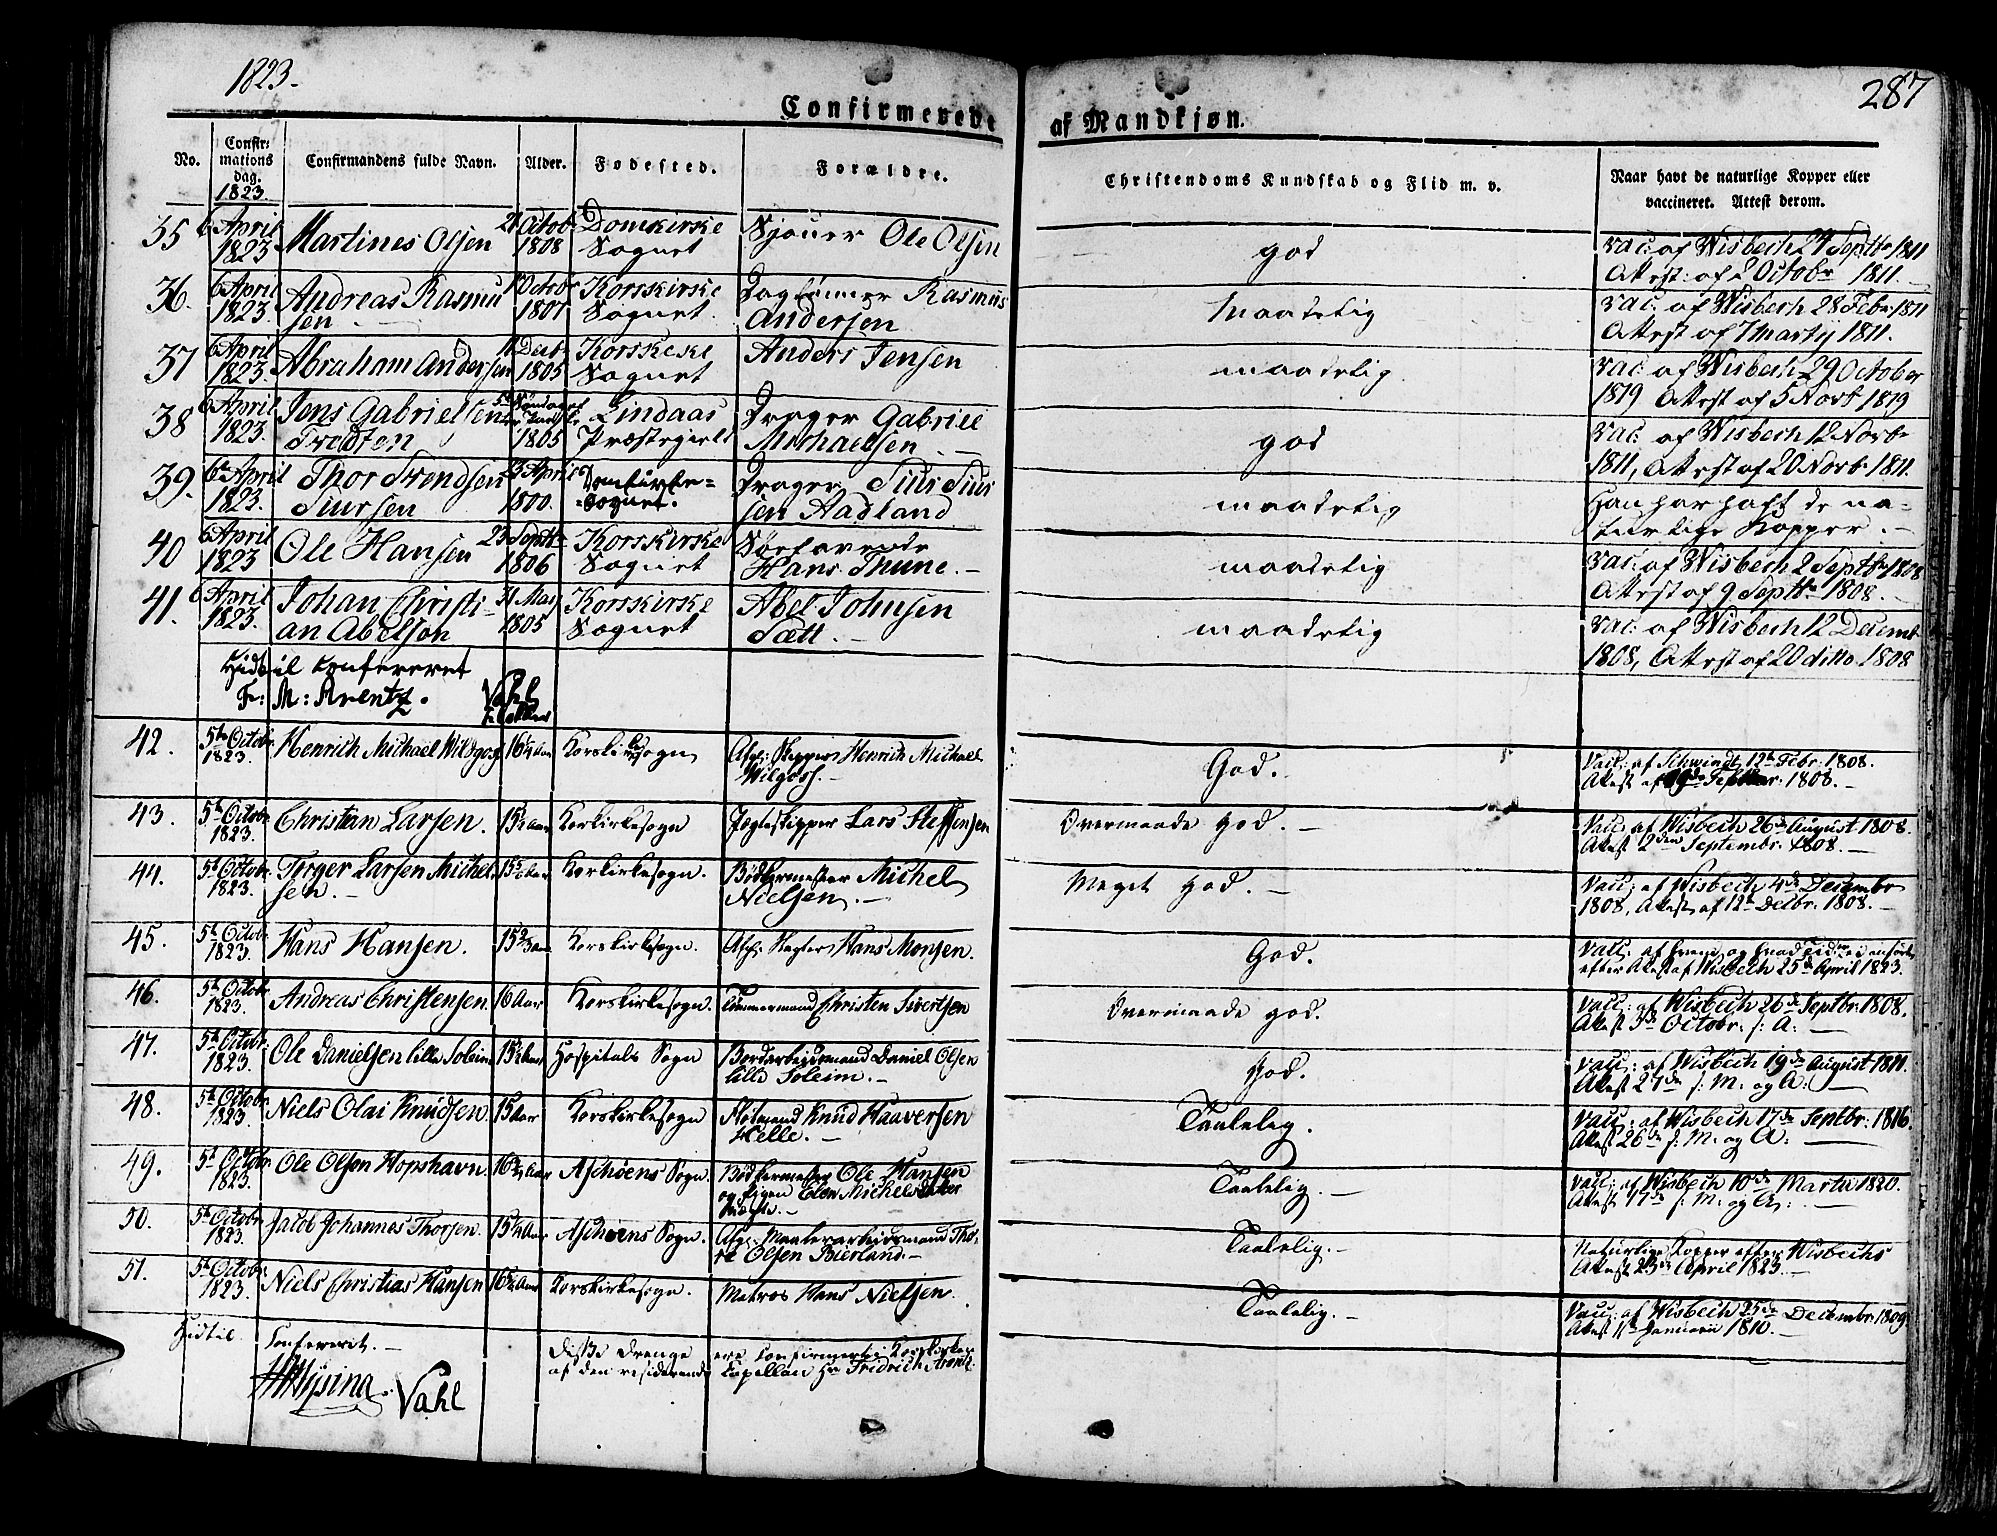 1823.
287
Confirmerede af Mandkjøn.
No.
Confir=
mations
dag.
1823.
Confirmandens fulde Navn.
Alder.
Fødested.
Forældre.
Christendoms Kundskab og Flid m. v.
Naar havt de naturlige Kopper eller
vaccineret. Attest derom.
35 6 April 1823 Martines Olsen 21 Octobr 1808 Domkirke Sognet Sjouer Ole Olsen god vac: af Wisbech 24 Septbr 1811
Attest: af 2 Octobr 1811.
36. 6 April 1823. Andreas Rasmu
sen Octobr 1807 Korskirke Sognet. Dagtønner Rasmus
Andersen maadelig vac: af Wisbech 28 Febr 1811
Attest af 7 marty 1811.
37 6 April 1823. Abraham Andersen 11 Decb. 1805 Korskirke Sognet Anders Jensen maadelig vac: af Wisbech 29 October
1819 Attest af 5 Novb 1819
38 6 April 1823. Jens Gabrielsen
Tredten 1805 Lindaas Præstegield Drager Gabriel
Michaelsen god vac: af Wisbech 12 Novbr
1811, Attest af 20 Novbr 1811.
39. 6te April 1823. Thor Trendsen
Siursen 23 April 1800. Domkirke=
Sognet. Drager Siur Siur
sen Aadland maadelig Han har haft de na=
turlige Kopper.
40 6 April 1823 Ole Hansen 23 Septbr 1806 Korskirke Sognet Søefarende
Hans Thune. maadelig vac: af Wisbech 2 Septbr 1808
Attest af 9 Septbr 1808.
41. 6 April 1823. Johan Christi=
an Abelsøn 31 May 1805 Korskirke Sognet Abel Johnsen
Sætt. maadelig vac: af Wisbech 12 Decemb
1808, Attest af 20 ditto 1808
Hidtil Confereret
Fr: M: Arentz. Vahl
42. 5te Octobr 1823. Henrich Michael Wilgoss 16¼ Aar Korskirkesogn Afg: Skipper Henrich Michael
Wilgoss. God. Vacc: af Schwindt 12te Febr: 1808.
Attest af Septbr: 1808.
43. 5te Octobr 1823. Christian Larsen. 15½ Aar Korskirkesogn Jægteskipper Lars Steffensen Overmaade god. Vacc: af Wisbech 26de August 1808.
Attest 2den Septembr: 1808.
44. 5te Octobr 1823. Terger Larsen Michel
sen. Korskirkesogn. Bødkermester Michel
Nielsen. Meget god. Vacc: af Wisbech 4de Decembr
1808, Attest af 12te Decbr: 1808.
45. 5te Octobr 1823. Hans Hansen. 15 2/3 Aar Korskirkesogn. Afg: Hans Monsen. God. Vacc: af hvem og hvad Tid
efter Attest af Wisbech 25de April 1823.
46. 5te Octobr 1823. Andreas Christensen. 16 Aar Korskirkesogn. Tømmermand Christen Sivertsen Overmaade god. Vacc: af Wisbech 26de Septbr: 1808.
Attest 3de Octobr: s: A:
47. 5te Octobr: 1823. Ole Danielsen lille Soleim 15½ Aar Hospitals Sogn Bordarbeidsmand Daniel Olsen
lille Soleim. God. Vacc: af Wisbech 19de August 1811.
Attest 27de s: M: og A:
48. 5te Octobr 1823. Niels Olai Knudsen. 15 Aar Korskirkesogn Flotmand Knud Haaversen
Helle. Taalelig. Vacc: af Wisbech 17de Septbr: 1816.
Attest 26de s: M: og A:
49. 5te Octobr 1823. Ole Olsen Hopshavn. 16¼ Aar Aschøens Sogn. Bødkermester Ole Hansen
og Pigen Elen Michelsdatter Taalelig. Vacc: af Wisbech 10de Martii 1820.
Attest 17de s: M: og A:
50. 5te Octobr 1823. Jacob Johannes Thorsen. 15¼ Aar Aschøens Sogn. Afg: Muurarbeidsmand Tho=
re Olsen Bierland. Taalelig. Naturlige Kopper efter Wisbechs
Attest 23de April 1823.
51. 5te Octobr 1823. Niels Christias Hansen 16¼ Aar Korskirkesogn. Matros Hans Nielsen. Taalelig. Vacc: af Wisbech 25de Decembr: 1809
Attest 11te Januarii 1810.
Hidtil Confereret.
Vahl
Disse Drenge ere Confirmerte i Korskirken
af den residerende Capellan Hr Fridrich Arentz